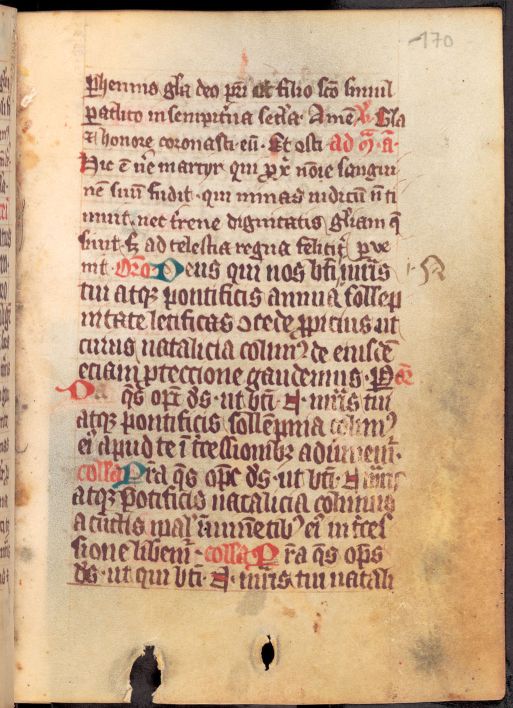 170
phennis gl̄a deo pr̄i & filio sc̄o simul
paclito in sempit̄na secl̄a. Amē. V̄. Gl̄a
⁊ honore coronasti eū. Et osti ad M̄. a͞.
Hic ē ve᷒ martyr qui p xp̄i nōre sangui
nē suū fudit. qui minas iudicū n̄ ti
muit. nec t̄rene dignitatis gl̄iam q̄
siuit. s; ad celestia regna felicit᷒ perue
nit. Or̄o Deus qui nos bt̄i .N. mr̄is
tui atq; pontificis annua sollep
nitate letificas ↄcede ppicius ut
cuius natalicia colim᷒ de eiusdē
eciam ꝓteccione gaudemus. P
ra q̄s op̄c ds̄. ut bt̄i. N. mr̄is tui
atq; pontificis sollepnia colim᷒
ei᷒ apud te īt̄cessionib᷒ adiuuem̄.
coll̄a Pra q̄s op̄c ds̄. ut bt̄i. N. mr̄is
atq; pōtificis natalicia colimus
a cūctis mal᷒ īminētib᷒ ei᷒ int̄ces
sione liberem̄. coll̄a Pra q̄s op̄s
ds̄. ut qui bt̄i. N. mr̄is tui natali